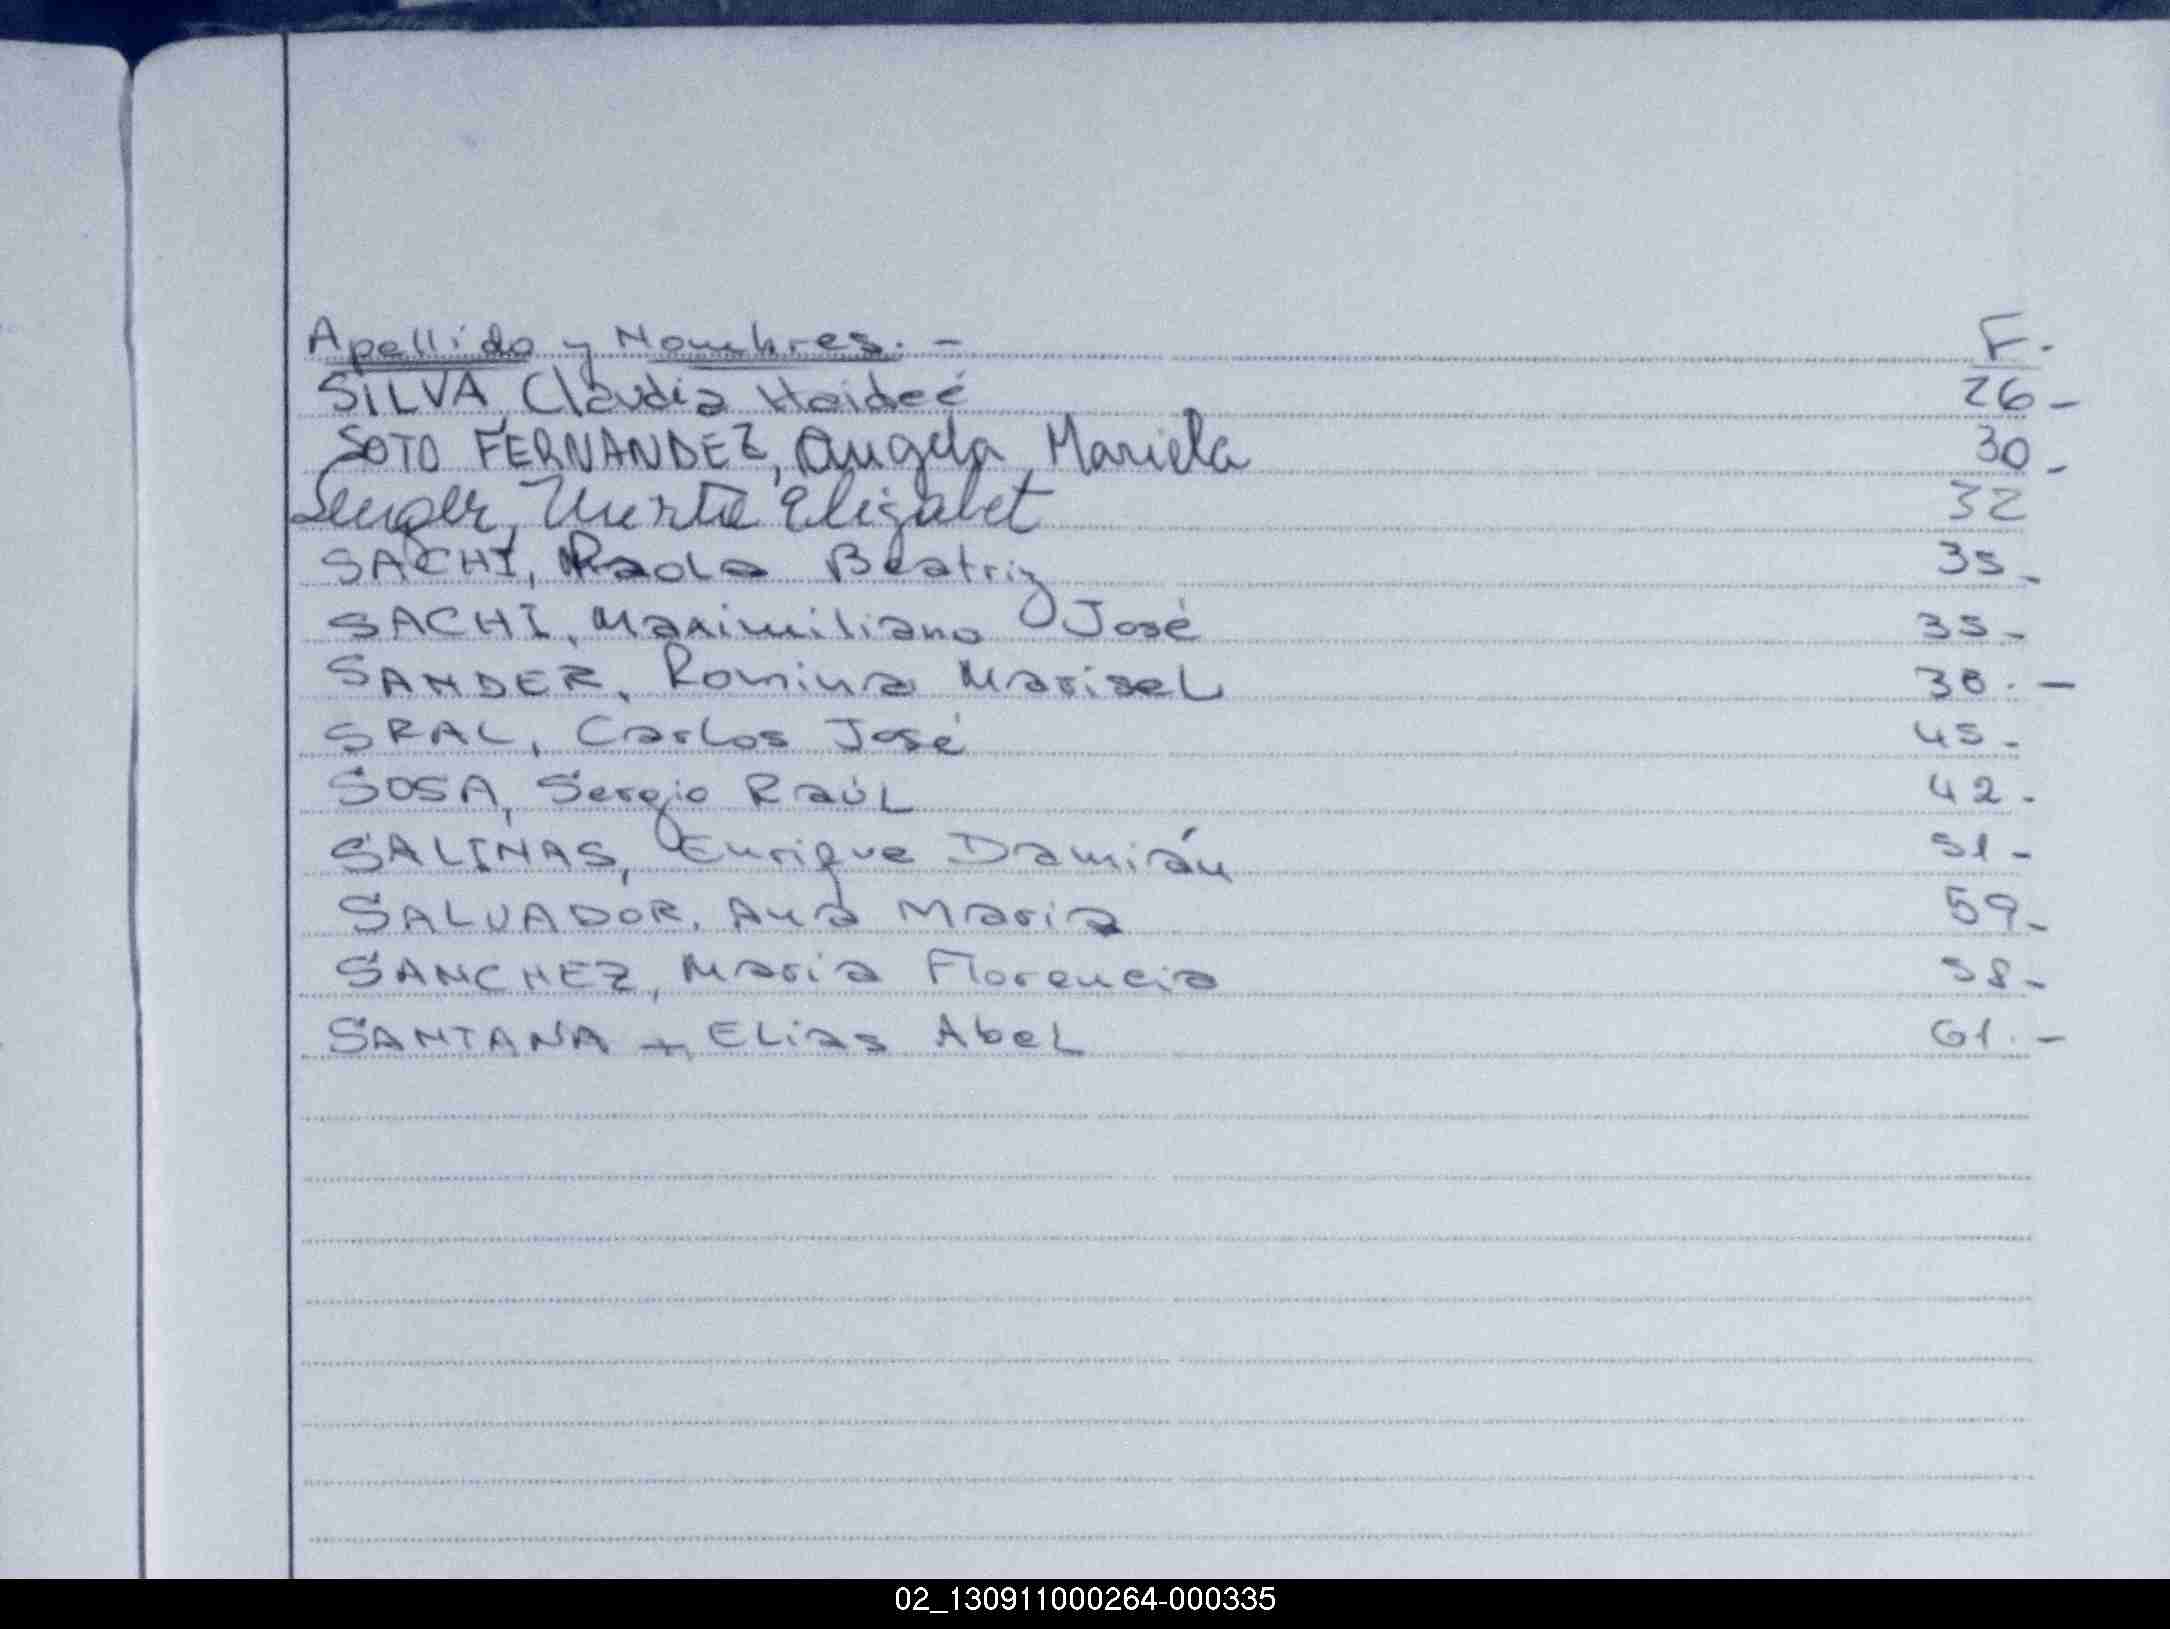 Apellido y Nombres. - F.
SILVA, Claudia Haideé 26-
SOTO FERNANDEZ, Angela Mariela 30-
Senger, Mirta Elizabet 32
SACHI, Paola Beatriz 35-
SACHI, Maximiliano José 35-
SANDER, Romina Marisel 38.-
SRAL, Carlos José 45-
SOSA, Sergio Raúl 42-
SALINAS, Enrique Damián 51-
SALVADOR, Ana Maria 59-
SANCHEZ, Maria Florencia 58-
SANTANA -, Elias Abel 61.-
02_130911000264-000335